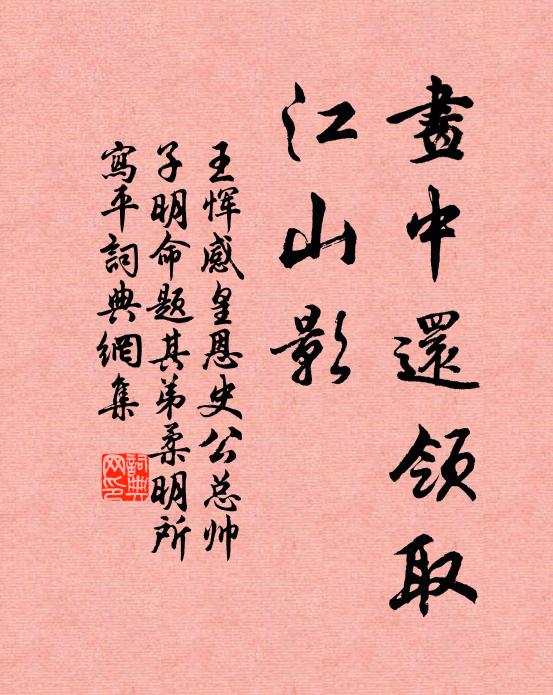 畫中還領取
江山影
王恽感皇恩史公总帅
子明命題其弟柔明所
寫平詞典網集
詞典
网印